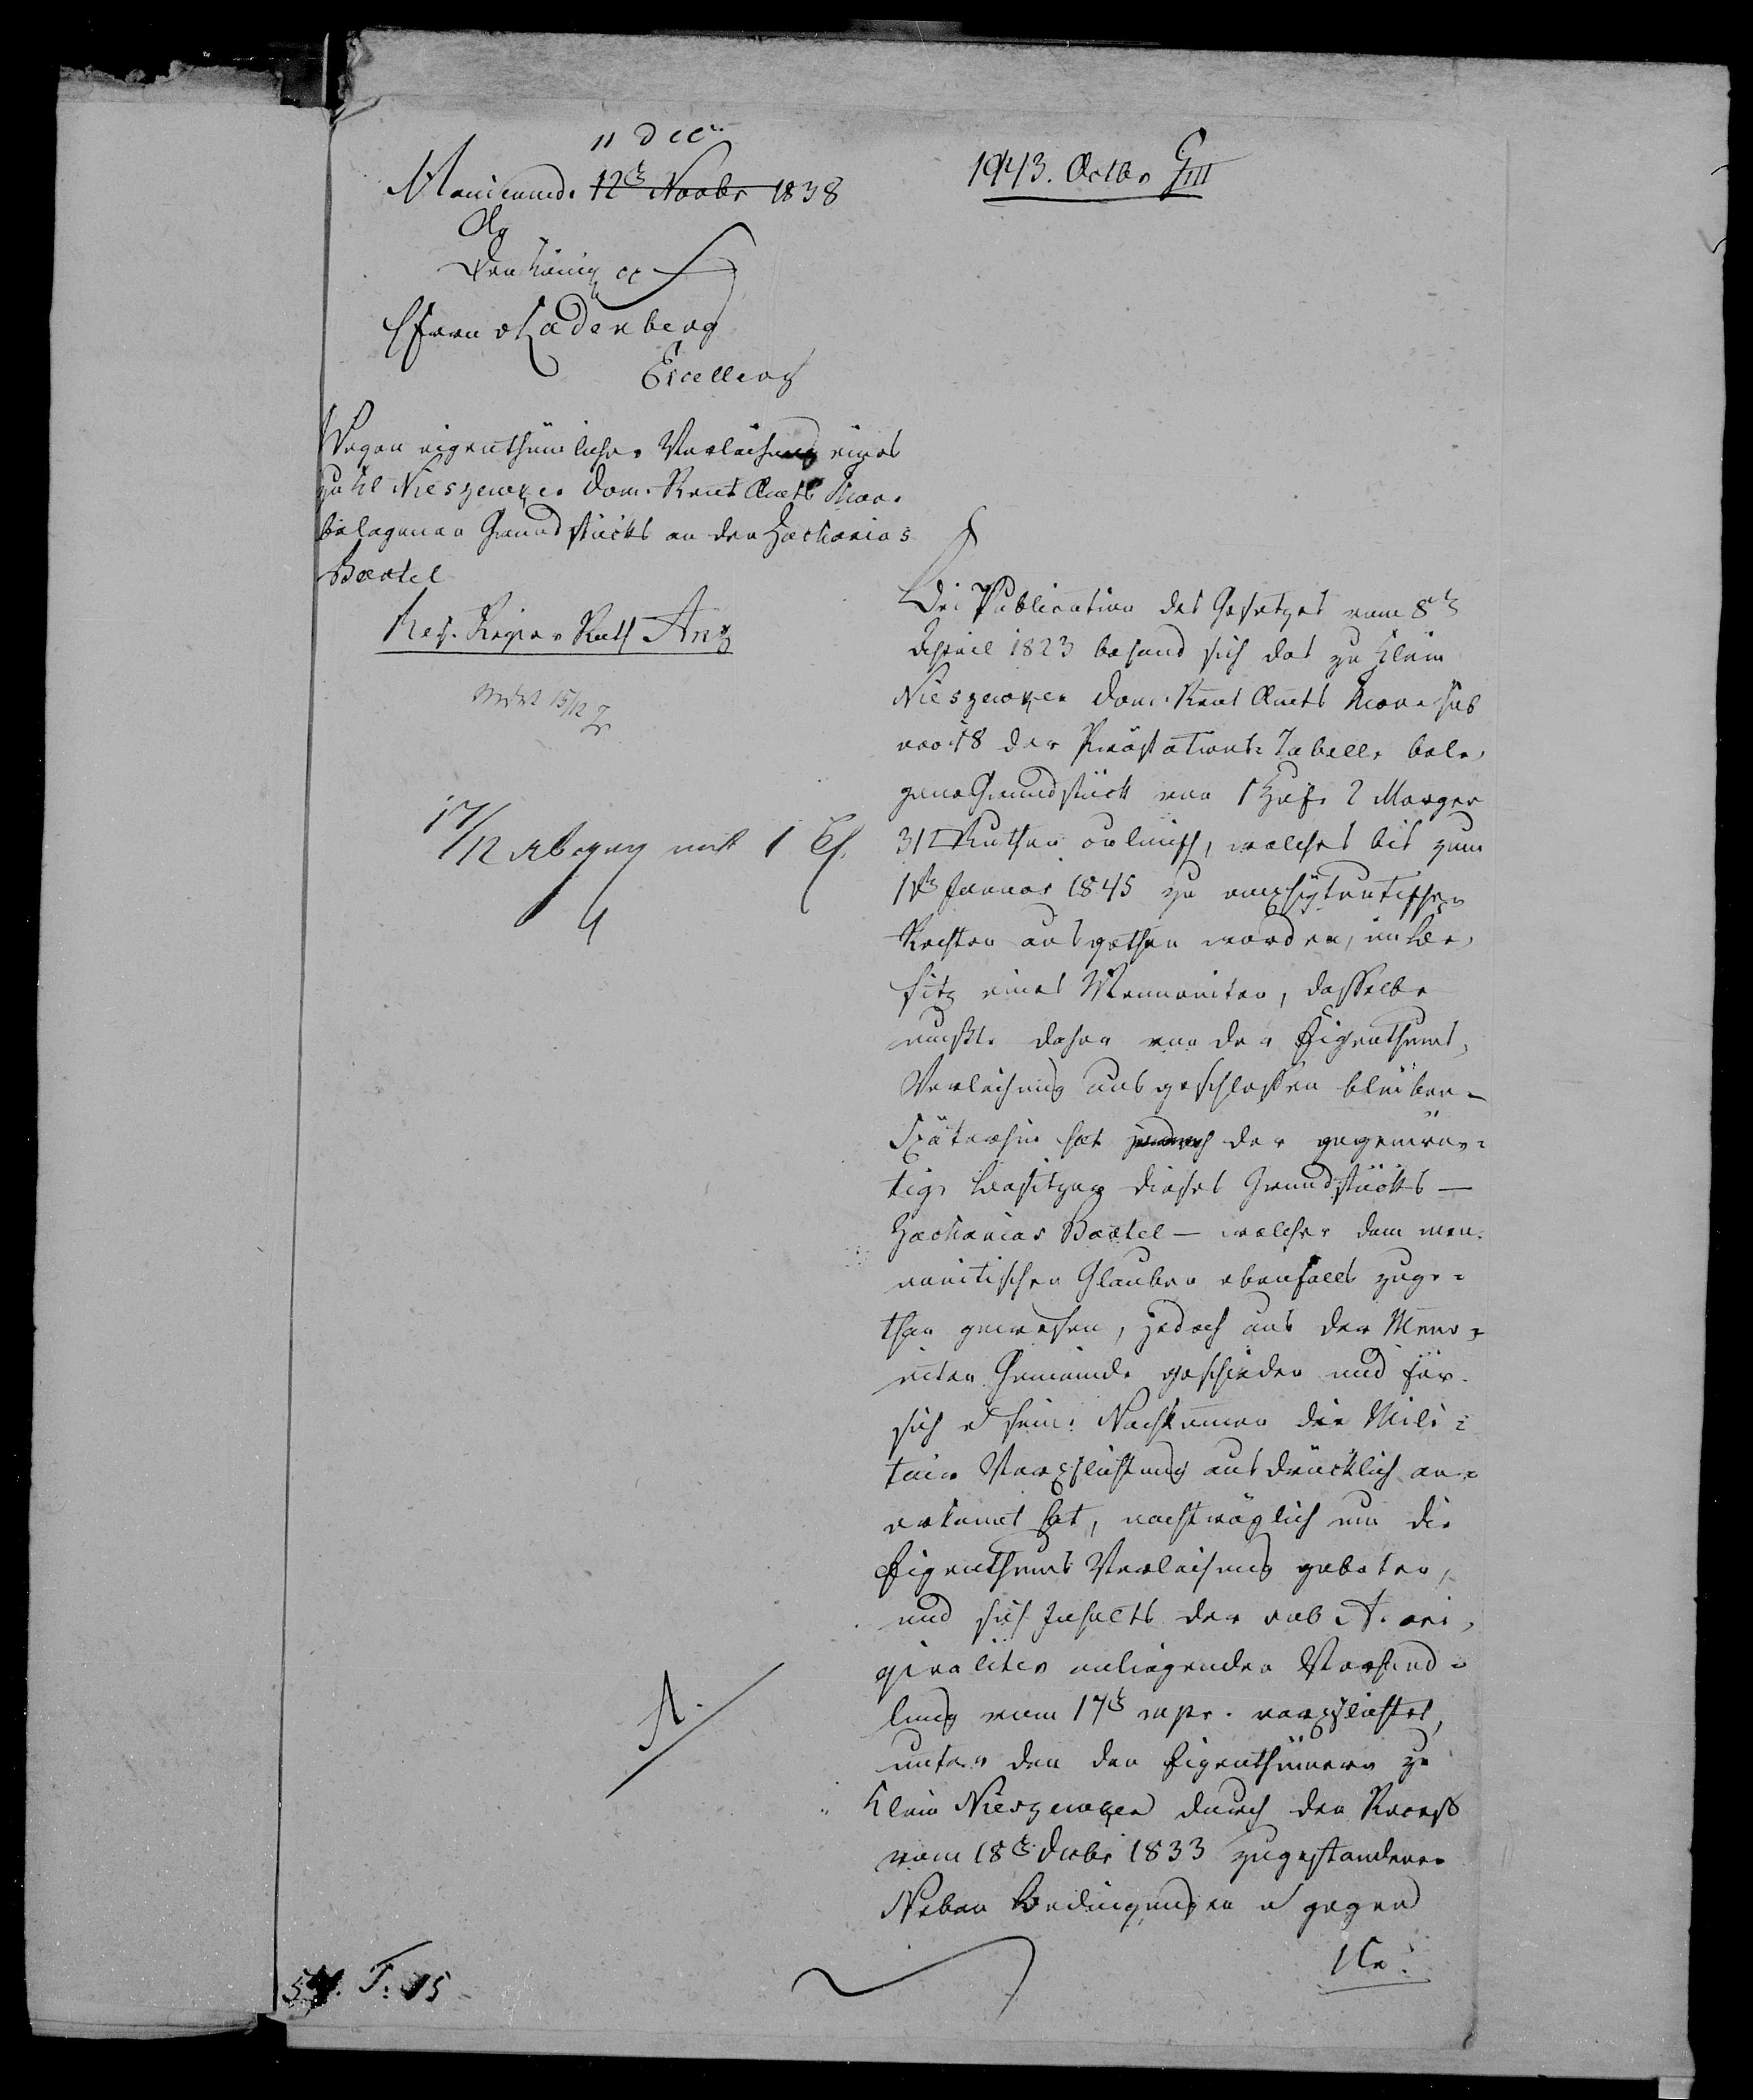 11 Dec
Marienwd. 12t Novbr 1838
1943. Octbr CIII
An
Den König pp
Herrn v Ladenberg
Excellenz
Wegen eigenthümlicher Verleihung eines
zu Kl Nieszewken Dom. Rent Amts Thorn
belegenen Grundstücks an den Zacharias
Bartel
Ref. Regier Rath
Mdt 15/12
17/12 abgegangen mit 1
Bei Publication des Gesetzes vom 8t
April 1823 befand sich das zu Klein
Nieszewken Dom. Rent Amts Thorn sub
no 18 der Prästations Tabelle bele,
gene Grundstück von 1 Hufe 2 Morgen
31 □Ruthen culmisch, welches bis zum
1t Januar 1845 zu emphiteutischen
Rechten ausgethan worden, im Be,
sitz eines Mennoniten, dasselbe
mußte daher von der Eigenthums,
Verleihung ausgeschlossen bleiben.
Späterhin hat der gegenwär=
tige Besitzer dieses Grundstücks —
Zacharias Bartel — welcher dem men=
nonitischen Glauben ebenfalls zuge=
than gewesen, jedoch aus der Meno=
niten Gemeinde geschieden und für
sich u seine Nachkommen die Mili=
tair Verpflichtung ausdrücklich an=
erkannt hat, nachträglich um die
Eigenthums Verleihung gebeten,
und sich Inhalts der sub A. ori,
ginaliter anliegenden Verhand=
lung vom 17t m pr. verpflichtet,
A.
unter den den Eigenthümern zu
Klein Nieszewken durch den Receß
vom 18t Decbr 1833 zugestandenen
Neben Bedingungen u gegen
54. T. 15